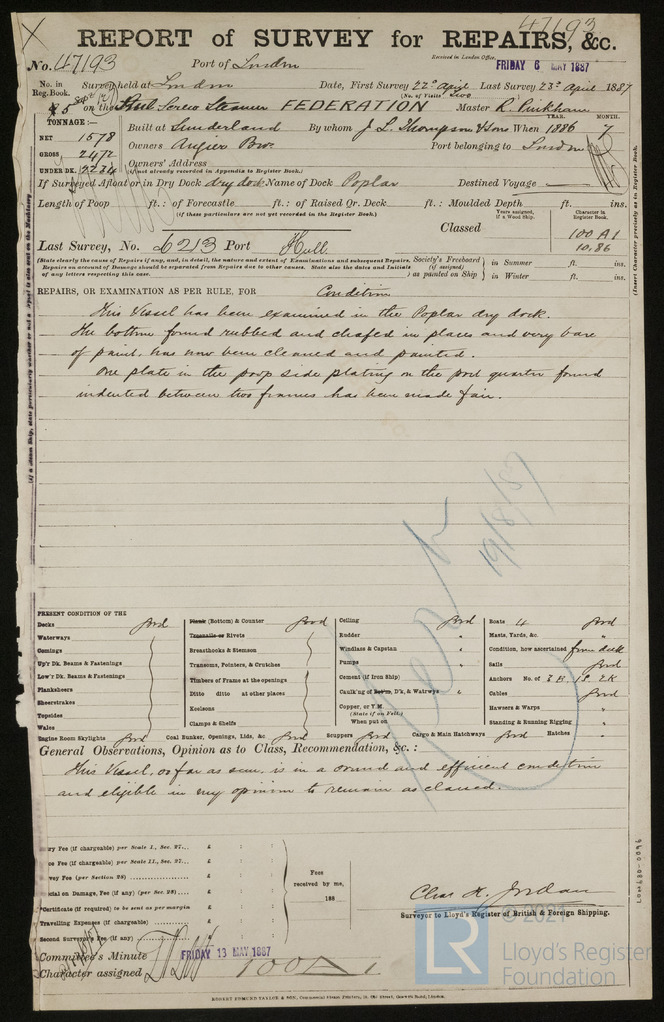 47193
REPORT of SURVEY for REPAIRS, &c.
No. 47193 Port of London Received in London Office, FRIDAY 6 MAY 1887
No. in Reg. Book. Survey held at London Date, First Survey 22nd April Last Survey 23rd April 1887
(No. of Visits two)
on the Screw Steamer FEDERATION Master R. Pinkham
TONNAGE:— YEAR. MONTH.
NET 1578 Built at Sunderland By whom J. L. Thompson & Sons When 1886 7
GROSS 2472 Owners Angier Bros. Port belonging to London
UNDER DK. 2234 Owners' Address
(if not already recorded in Appendix to Register Book.)
If Surveyed Afloat or in Dry Dock dry dock Name of Dock Poplar Destined Voyage
Length of Poop ft.: of Forecastle ft.: of Raised Qr. Deck ft.: Moulded Depth ft. ins.
(if these particulars are not yet recorded in the Register Book.)
Years assigned, if a Wood Ship. Character in Register Book.
Classed 100 A1
10.86
Last Survey, No. 6213 Port Hull.
(State clearly the cause of Repairs if any, and, in detail, the nature and extent of Examinations and subsequent Repairs. Repairs on account of Damage should be separated from Repairs due to other causes. State also the dates and Initials of any letters respecting this case.
Society's Freeboard (if assigned) as painted on Ship } in Summer ft. ins.
in Winter ft. ins.
(Insert Character precisely as in Register Book.)
REPAIRS, OR EXAMINATION AS PER RULE, FOR Condition
This Vessel has been examined in the Poplar dry dock.
The bottom found rubbed and chafed in places and very bare
of paint, has now been cleaned and painted.
One plate in the poop side plating on the port quarter found
indented between two frames has been made fair.
19/8/87
PRESENT CONDITION OF THE
Decks good
Waterways
Comings
Up'r Dk. Beams & Fastenings
Low'r Dk. Beams & Fastenings
Planksheers
Sheerstrakes
Topsides
Wales
Plank (Bottom) & Counter good
Treenails or Rivets
Breasthooks & Stemson
Transoms, Pointers, & Crutches
Timbers of Frame at the openings
Ditto ditto at other places
Keelsons
Clamps & Shelfs
Ceiling good
Rudder "
Windlass & Capstan "
Pumps "
Cement (if Iron Ship) "
Caulk'ng of Bot'm, D'k, & Watrwys "
Copper, or Y.M.
(State if on Felt.)
When put on
Boats 4 good
Masts, Yards, &c. "
Condition, how ascertained from deck
Sails good
Anchors No. of 3 B. 1 S. 2 K
Cables good
Hawsers & Warps "
Standing & Running Rigging "
Engine Room Skylights good Coal Bunker, Openings, Lids, &c good Scuppers good Cargo & Main Hatchways good Hatches "
General Observations, Opinion as to Class, Recommendation, &c.:
This Vessel, as far as seen, is in a sound and efficient condition
and eligible in my opinion to remain as classed.
Fee (if chargeable) per Scale 1, Sec. 27... £ : :
Fee (if chargeable) per Scale II., Sec. 27... £ : :
Fee (per Section 28) £ : :
on Damage, Fee (if any) (per Sec. 28) £ : :
Certificate (if required) to be sent as per margin £ : :
Travelling Expenses (if chargeable) £ : :
Second Surveyor's Fee (if any) £ : :
Fees received by me,
188
Chas. H. Jordan
Surveyor to Lloyd's Register of British & Foreign Shipping.
Committee's Minute FRIDAY 13 MAY 1887
Character assigned 100 A 1
LON680-0096
© 2021
LR
Lloyd's Register
Foundation
ROBERT EDMUND TAYLOR & SON,